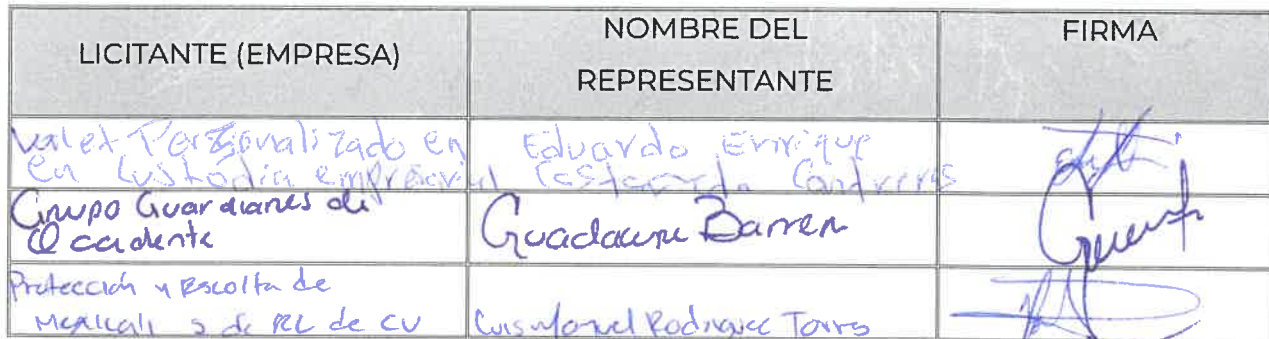 LICITANTE (EMPRESA)
NOMBRE DEL
REPRESENTANTE
FIRMA
Valet Personalizado en
en Custodia empresarial
Eduardo Enrique
Castañeda Contreras
Grupo Guardianes de
Occidente
Guadalupe Barrera
Protección y Escolta de
Mexicali S de RL de CV
Luis Manuel Rodriguez Torres